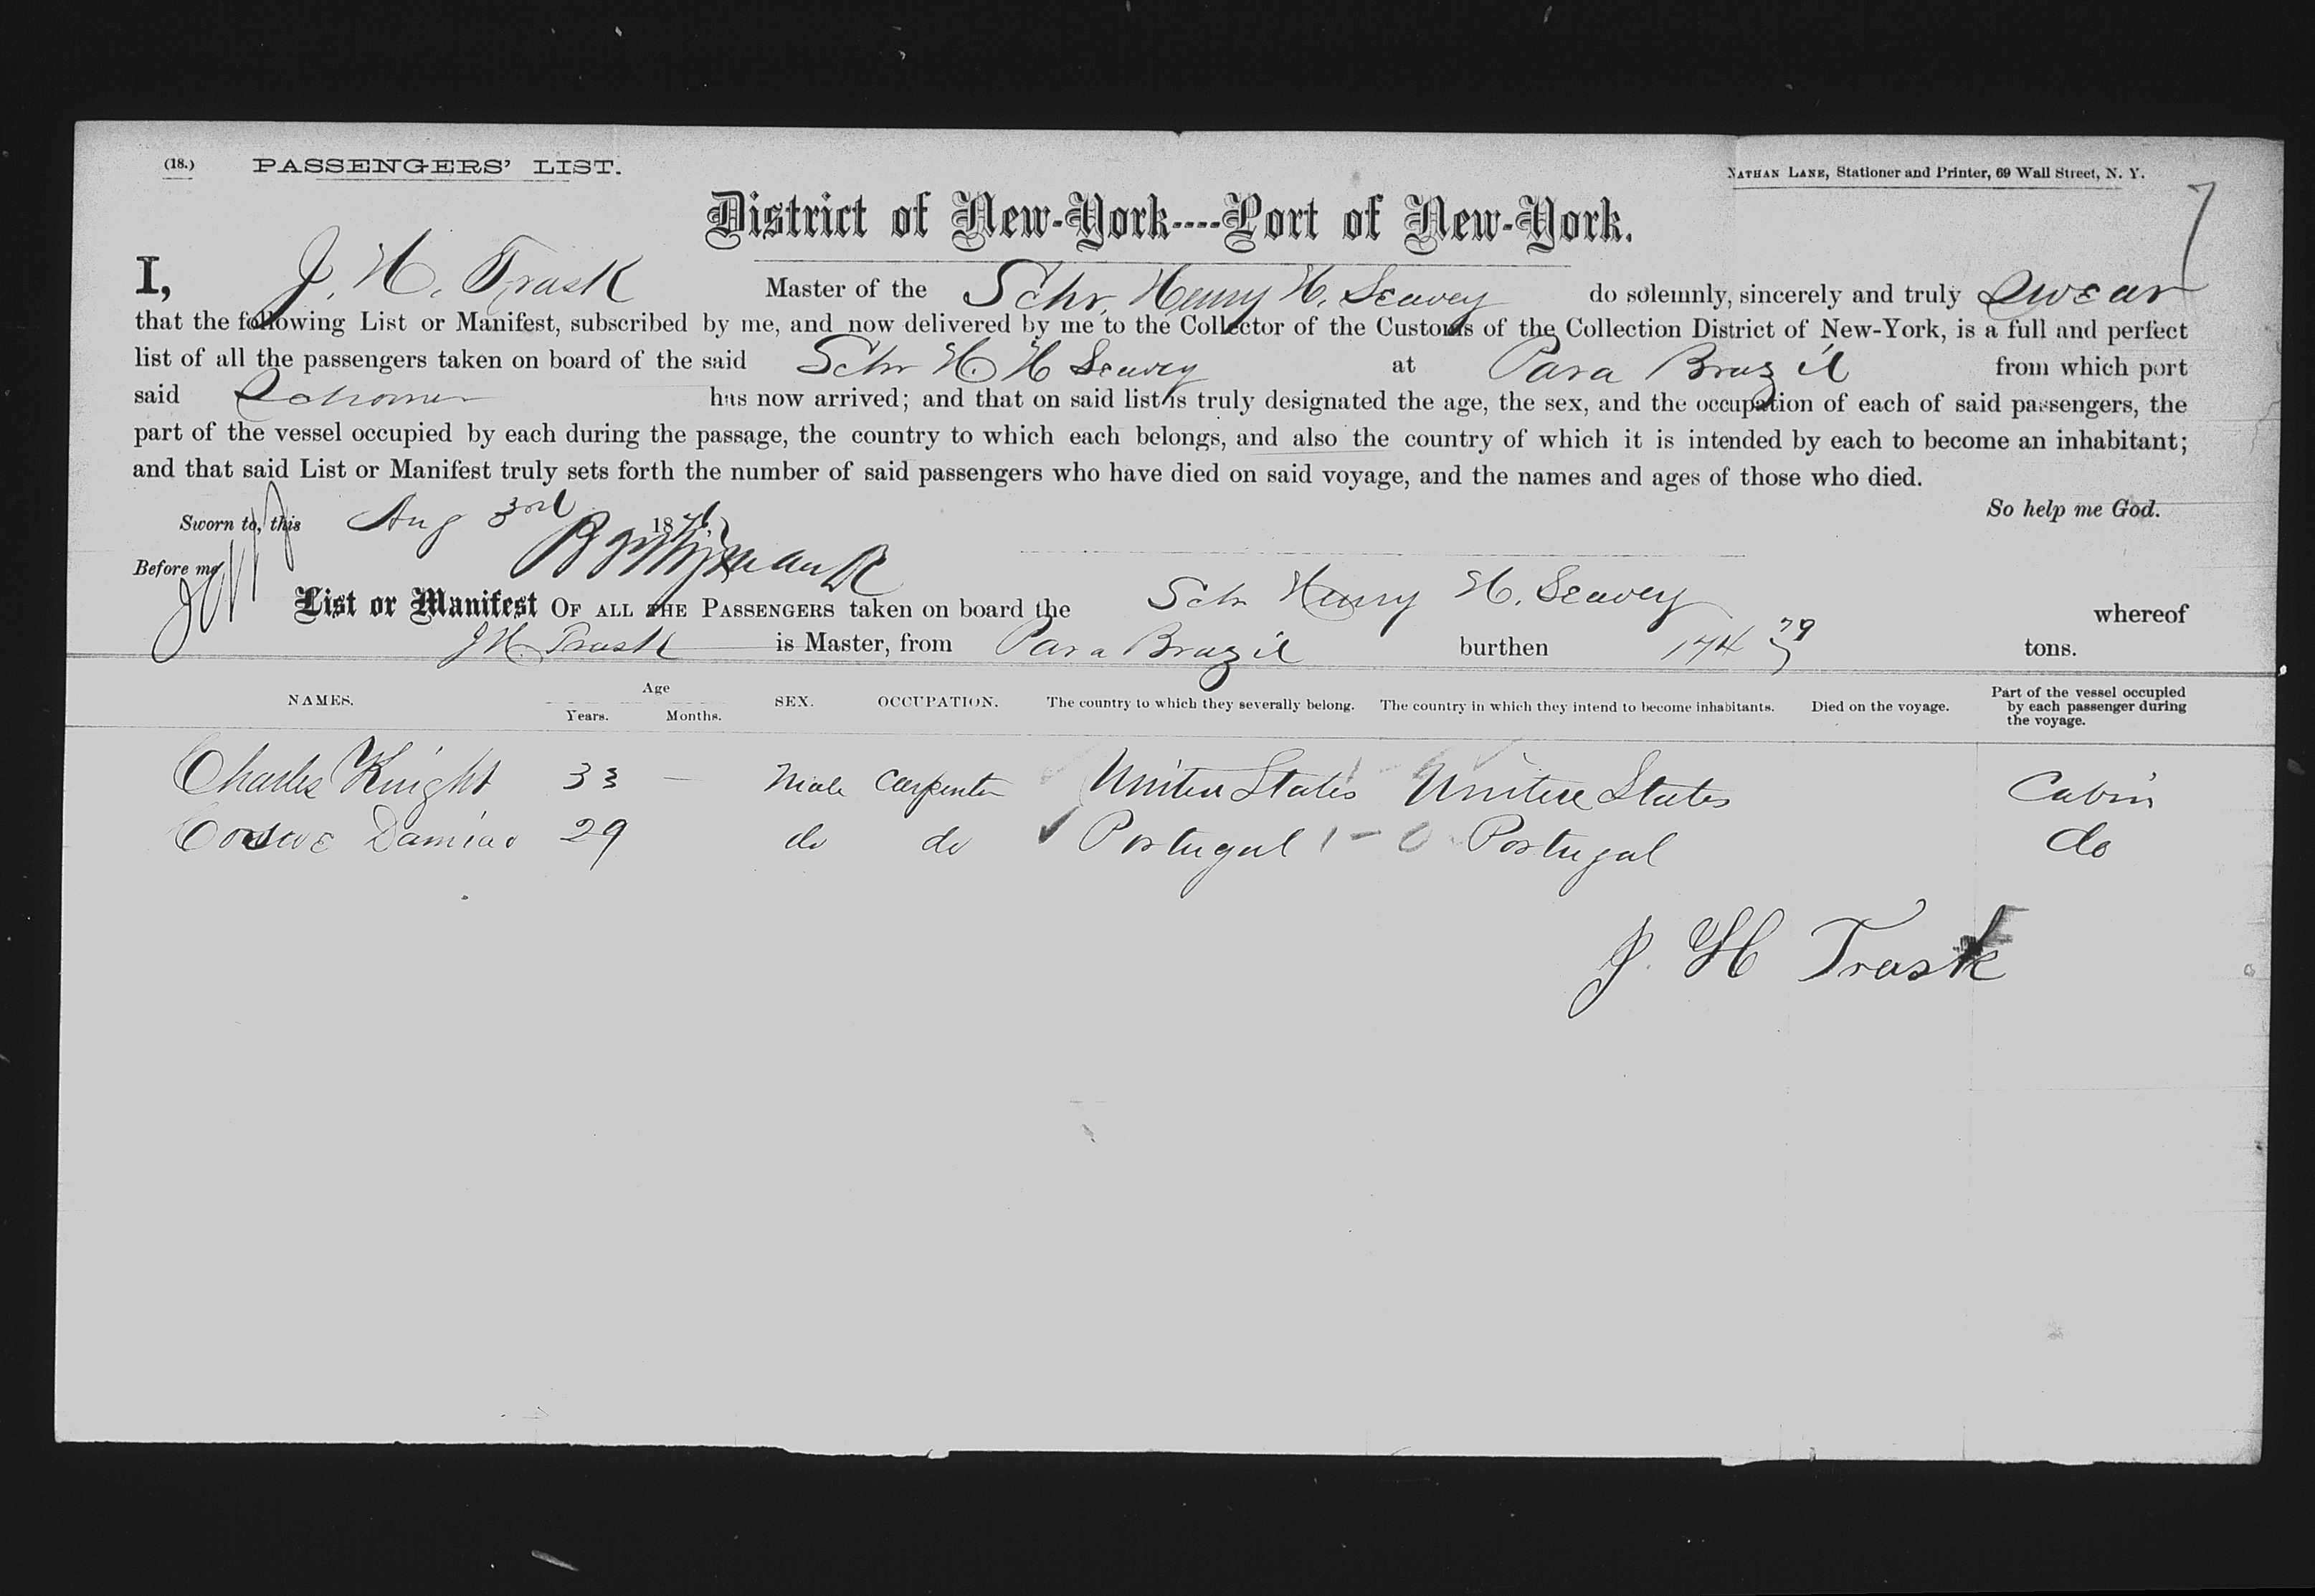 (18.) PASSENGERS' LIST. NATHAN LANE, Stationer and Printer, 69 Wall Street, N. Y.
7
District of New-York----Port of New-York.
I, J. H. Trask Master of the Schr. Henry H. Seavey do solemnly, sincerely and truly Swear
that the following List or Manifest, subscribed by me, and now delivered by me to the Collector of the Customs of the Collection District of New-York, is a full and perfect
list of all the passengers taken on board of the said Schr H. H Seavey at Para Brazil from which port
said Schooner has now arrived; and that on said list is truly designated the age, the sex, and the occupation of each of said passengers, the
part of the vessel occupied by each during the passage, the country to which each belongs, and also the country of which it is intended by each to become an inhabitant;
and that said List or Manifest truly sets forth the number of said passengers who have died on said voyage, and the names and ages of those who died.
So help me God.
Sworn to, this Aug 3rd 187
Before me
List or Manifest OF ALL THE PASSENGERS taken on board the Schr Henry H. Seavey whereof
J H. Trask is Master, from Para Brazil burthen 174 79 tons.
NAMES. Age Years. Months. SEX. OCCUPATION. The country to which they severally belong. The country in which they intend to become inhabitants. Died on the voyage. Part of the vessel occupied by each passenger during the voyage.
Charles Knight 33 — Male Carpenter United States United States Cabin
Damiao 29 do do ✓ Portugal 1 - 0 Portugal do
J. H Trask